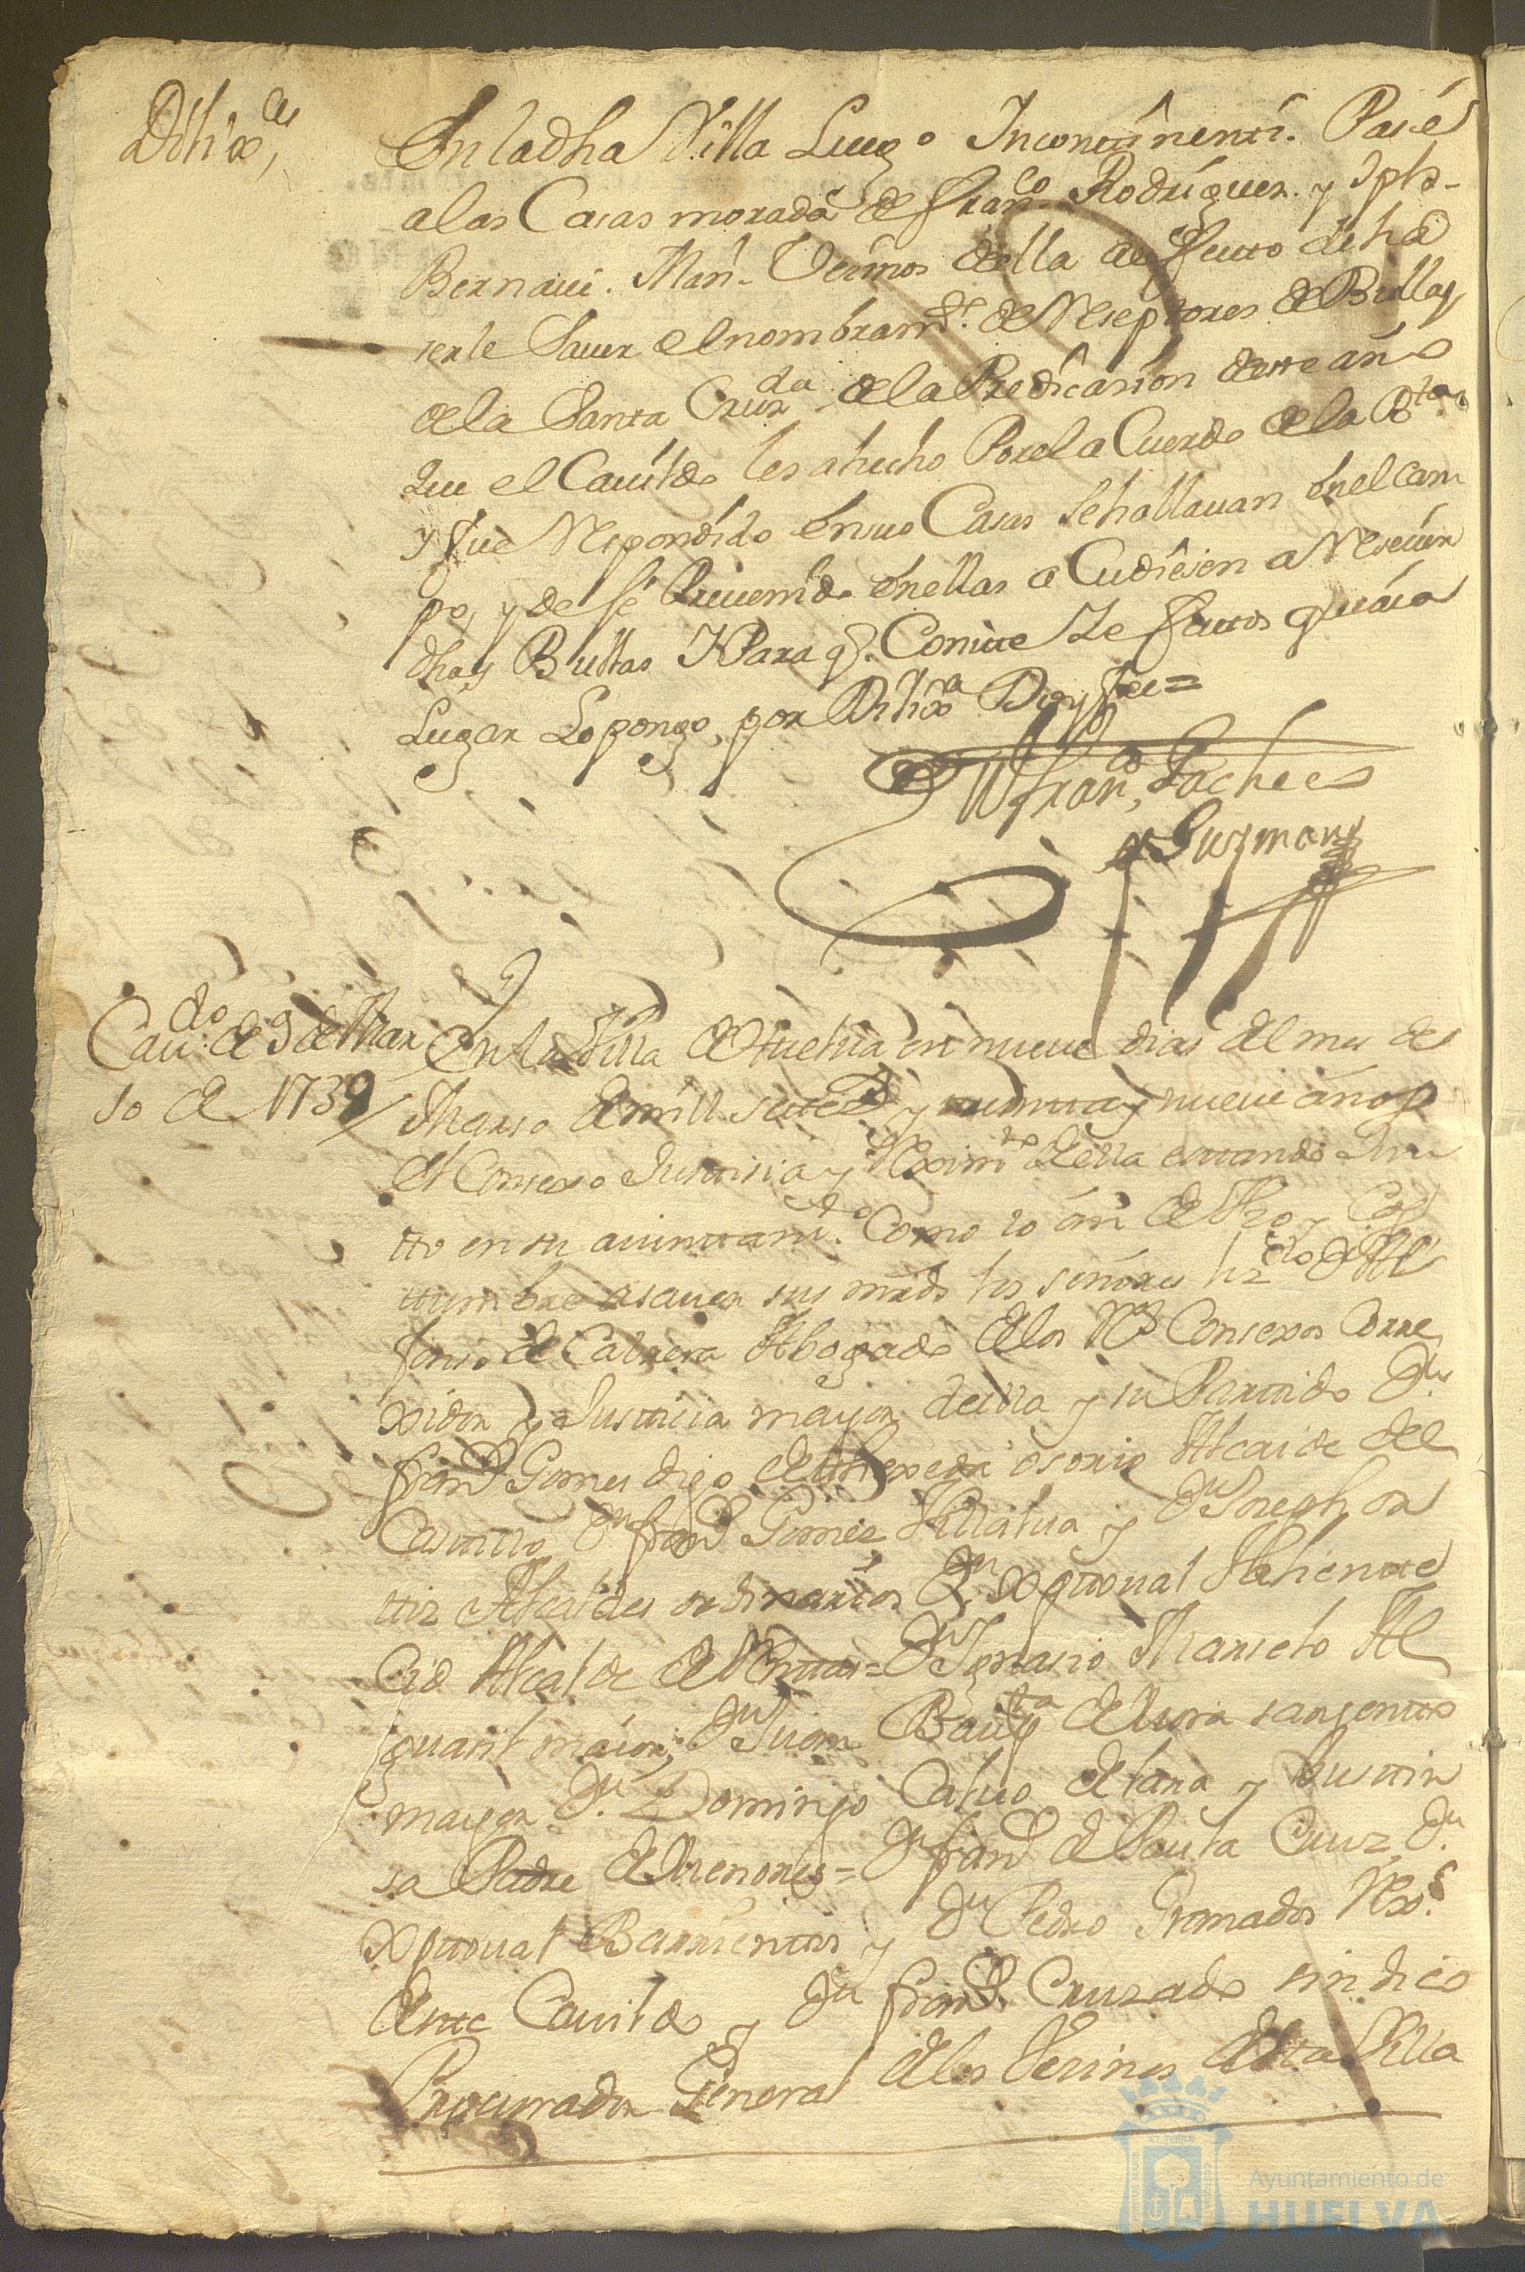 Dilix.as
En la dha Villa Luego Incontinenti. Pasé
a las Casas morada de Fran.co Rodriguez. y Jph.
Bernavé. Man. Vecinos della a efecto de ha
serle Saver el nombram.to de Reseptores de Bullas
de la Santa Cruz.da de la Predicasion deste año
que el Cavildo les a hecho Por el aCuerdo de la
y fue Respondido en sus Casas Se hallavan en el cam
po, y dejé Prevenido en ellas aCudiesen a Resevir
dhas Bullas Y Para q. Conste y efectos q haia
Lugar Lo pongo por Dilix.a Doy fee=
Fran.co Pacheco
y Guzman
Cav.do de 9 de Mar
so de 1739
En la Villa de Huelva en nueve dias del mes de
Marso de mill sete.s y treinta y nueve años
el Consexo Justisia y Reximi.to della estando Jun
tto en su aiuntam.to Como lo an de Uso y Cos
ttumbre asaver sus mrds los señores Liz.do D. Al
fonso de Cabrera Abogado de los R.s Consexos Corre
xidor y Justicia mayor della y su Partido D.n
Fran.co Gomes digo de Osorio Alcaide del
Casttillo D.n Fran.co Gomez Villalva y D.n Joseph Or
ttiz Alcaldes ordinarios D.n Xpttoval
Cid Alcalde de = D.n Ygnasio Marselo Al
guasil maior, D.n Juan Baup.ta de Mora sarjentto
mayor D.n Domingo Calvo de Lara y
sa Padre de Menores = D.n Fran.co de Paula Cruz, D.n
Xpttoval Barrienttos y D.n Pedro Granados Rex.s
deste Cavildo y D.n Fran.co Cruzado sindico
Procurador General de los Vesinos desta Villa
Ayuntamiento de
HUELVA